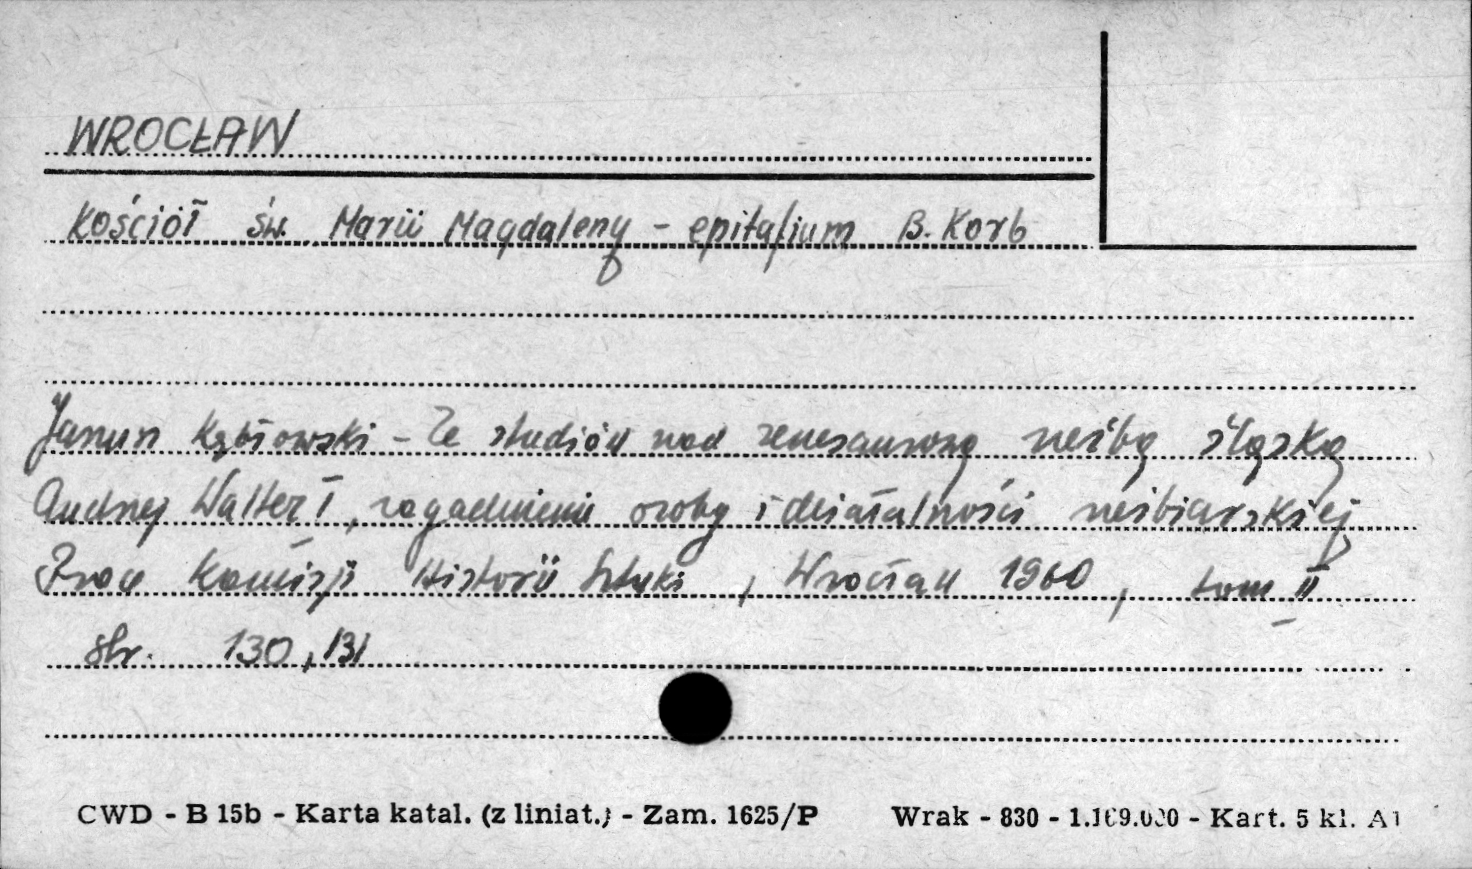 WROCŁAW
Kościół św. Marii Magdaleny - epitafium B. Korb
Janusz Kębłowski - Ze studiów nad renesansową rzeźbą śląską
Andrzej Walter I, zagadnienie osoby i działalności rzeźbiarskiej
Prace Komisji Historii Sztuki, Wrocław 1960, tom II
str. 130, 131
CWD - B 15b - Karta katal. (z liniat.) - Zam. 1625/P Wrak - 830 - 1.169.000 - Kart. 5 kl. A1